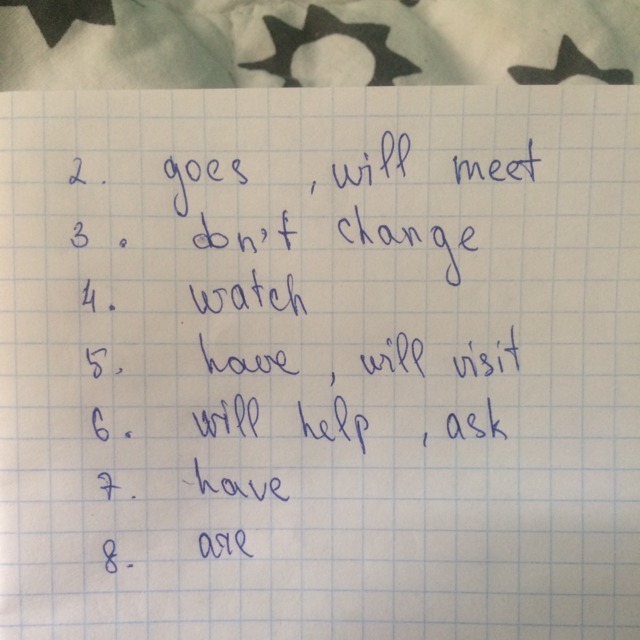 2. goes , will meet
3. don't change
4. watch
5. have , will visit
6. will help , ask
7. have
8. are